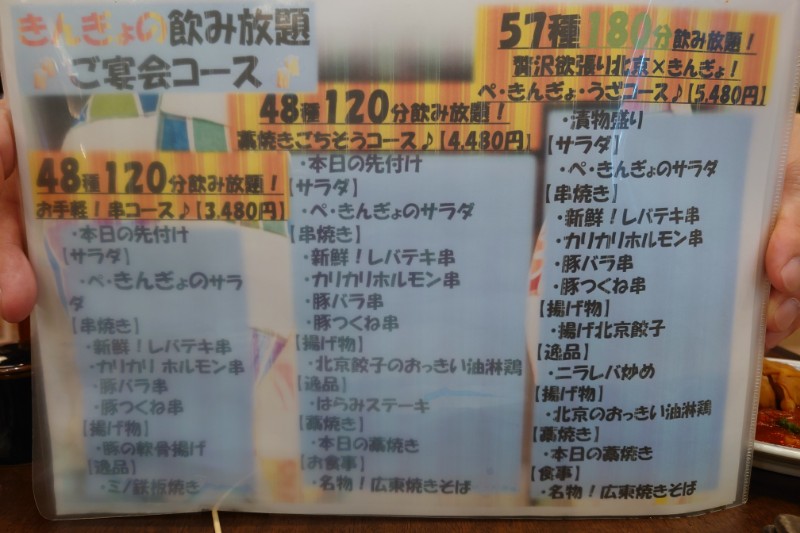 きんぎょの飲み放題
ご宴会コース
48種120分飲み放題!
お手軽!串コース♪【3,480円】
・本日の先付け
【サラダ】
・ペ・きんぎょのサラ
ダ
【串焼き】
・新鮮!レバテキ串
・カリカリホルモン串
・豚バラ串
・豚つくね串
【揚げ物】
・豚の軟骨揚げ
【逸品】
・ミノ鉄板焼き
48種120分飲み放題!
藁焼きごちそうコース♪【4,480円】
・本日の先付け
【サラダ】
・ペ・きんぎょのサラダ
【串焼き】
・新鮮!レバテキ串
・カリカリホルモン串
・豚バラ串
・豚つくね串
【揚げ物】
・北京餃子のおっきい油淋鶏
【逸品】
・はらみステーキ
【藁焼き】
・本日の藁焼き
【お食事】
・名物!広東焼きそば
57種180分飲み放題!
贅沢欲張り北京×きんぎょ!
ペ・きんぎょ・うざコース♪【5,480円】
・漬物盛り
【サラダ】
・ペ・きんぎょのサラダ
【串焼き】
・新鮮!レバテキ串
・カリカリホルモン串
・豚バラ串
・豚つくね串
【揚げ物】
・揚げ北京餃子
【逸品】
・ニラレバ炒め
【揚げ物】
・北京のおっきい油淋鶏
【藁焼き】
・本日の藁焼き
【食事】
・名物!広東焼きそば